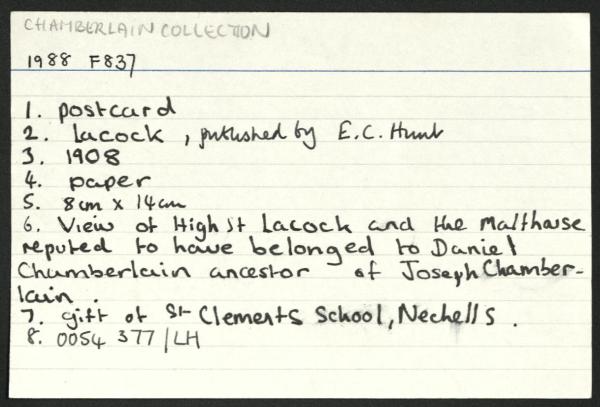 CHAMBERLAIN COLLECTION
1988 F837
1. postcard
2. Lacock , published by E.C. Hunt
3. 1908
4. paper
5. 8cm x 14cm
6. View of High St Lacock and the Malthouse
reputed to have belonged to Daniel
Chamberlain ancestor of Joseph Chamber-
lain .
7. gift of St Clements School, Nechells .
8. 0054 377/LH